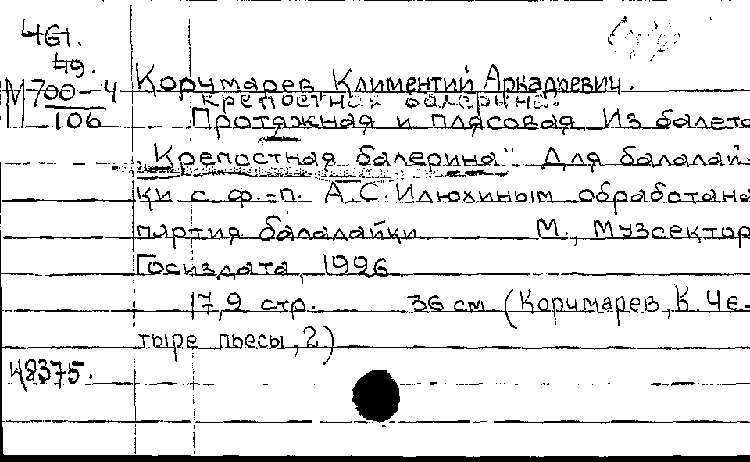 461.
49.
М 700-4
106
Корчмарев Климентий Аркадьевич.
Крепостная балерина.
Протяжная и плясовая Из балета
„Крепостная балерина". Для балалай-
ки с ф.-п. А.С. Илюхиным обработана
партия балалайки М., Музсектор
Госиздата, 1926
17,9 стр. 36 см (Корчмарев, К. Че-
тыре пьесы, 2)
48375.